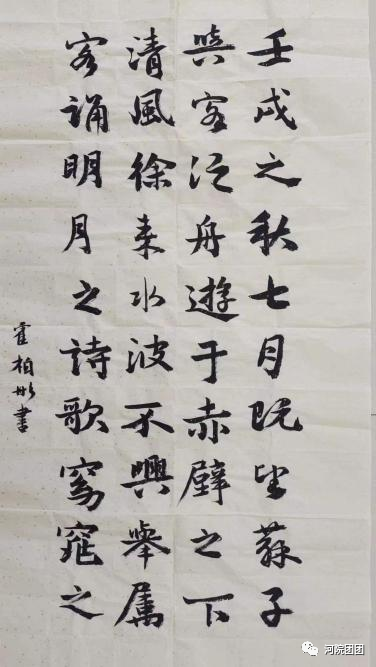 壬戌之秋七月既望蘇子
與客泛舟遊于赤壁之下
清風徐来水波不興舉屬
客誦明月之詩歌窈窕之
霍柏彤書
河院团团